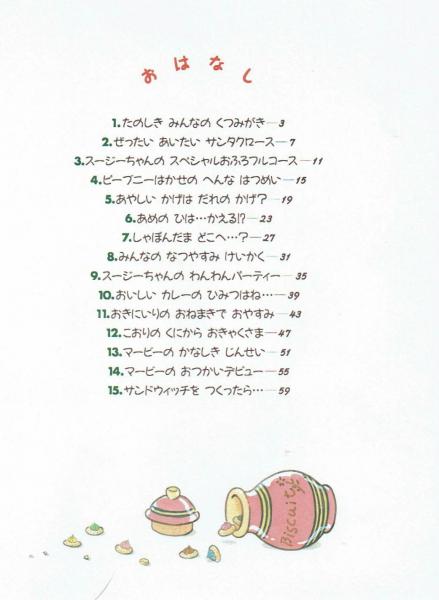 おはなし
1.たのしき みんなの くつみがき—3
2.ぜったい あいたい サンタクロース—7
3.スージーちゃんの スペシャルおふろフルコース—11
4.ビーブニーはかせの へんな はつめい—15
5.あやしい かげは だれの かげ?—19
6.あめの ひは…かえる!?—23
7.しゃぼんだま どこへ…?—27
8.みんなの なつやすみ けいかく—31
9.スージーちゃんの わんわんパーティー—35
10.おいしい カレーの ひみつはね…—39
11.おきにいりの おねまきで おやすみ—43
12.こおりの くにから おきゃくさま—47
13.マービーの かなしき じんせい—51
14.マービーの おつかいデビュー—55
15.サンドウィッチを つくったら…—59
Biscuit